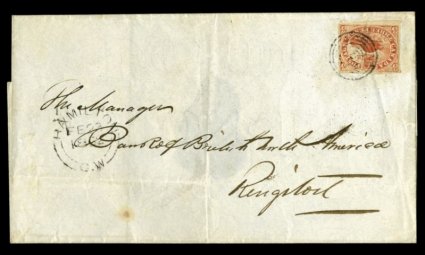 The Manager
HAMILTON
FE
C.W
Bank of British North America
Kingston